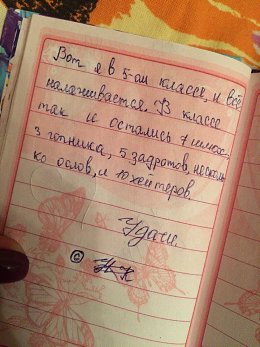 Вот я в 5-ом классе, и всё
налаживается. В классе
так и остались 7 шлюх,
3 гопника, 5 задротов, несколь
ко ослов, и 10 хейтеров.
Удачи.
©